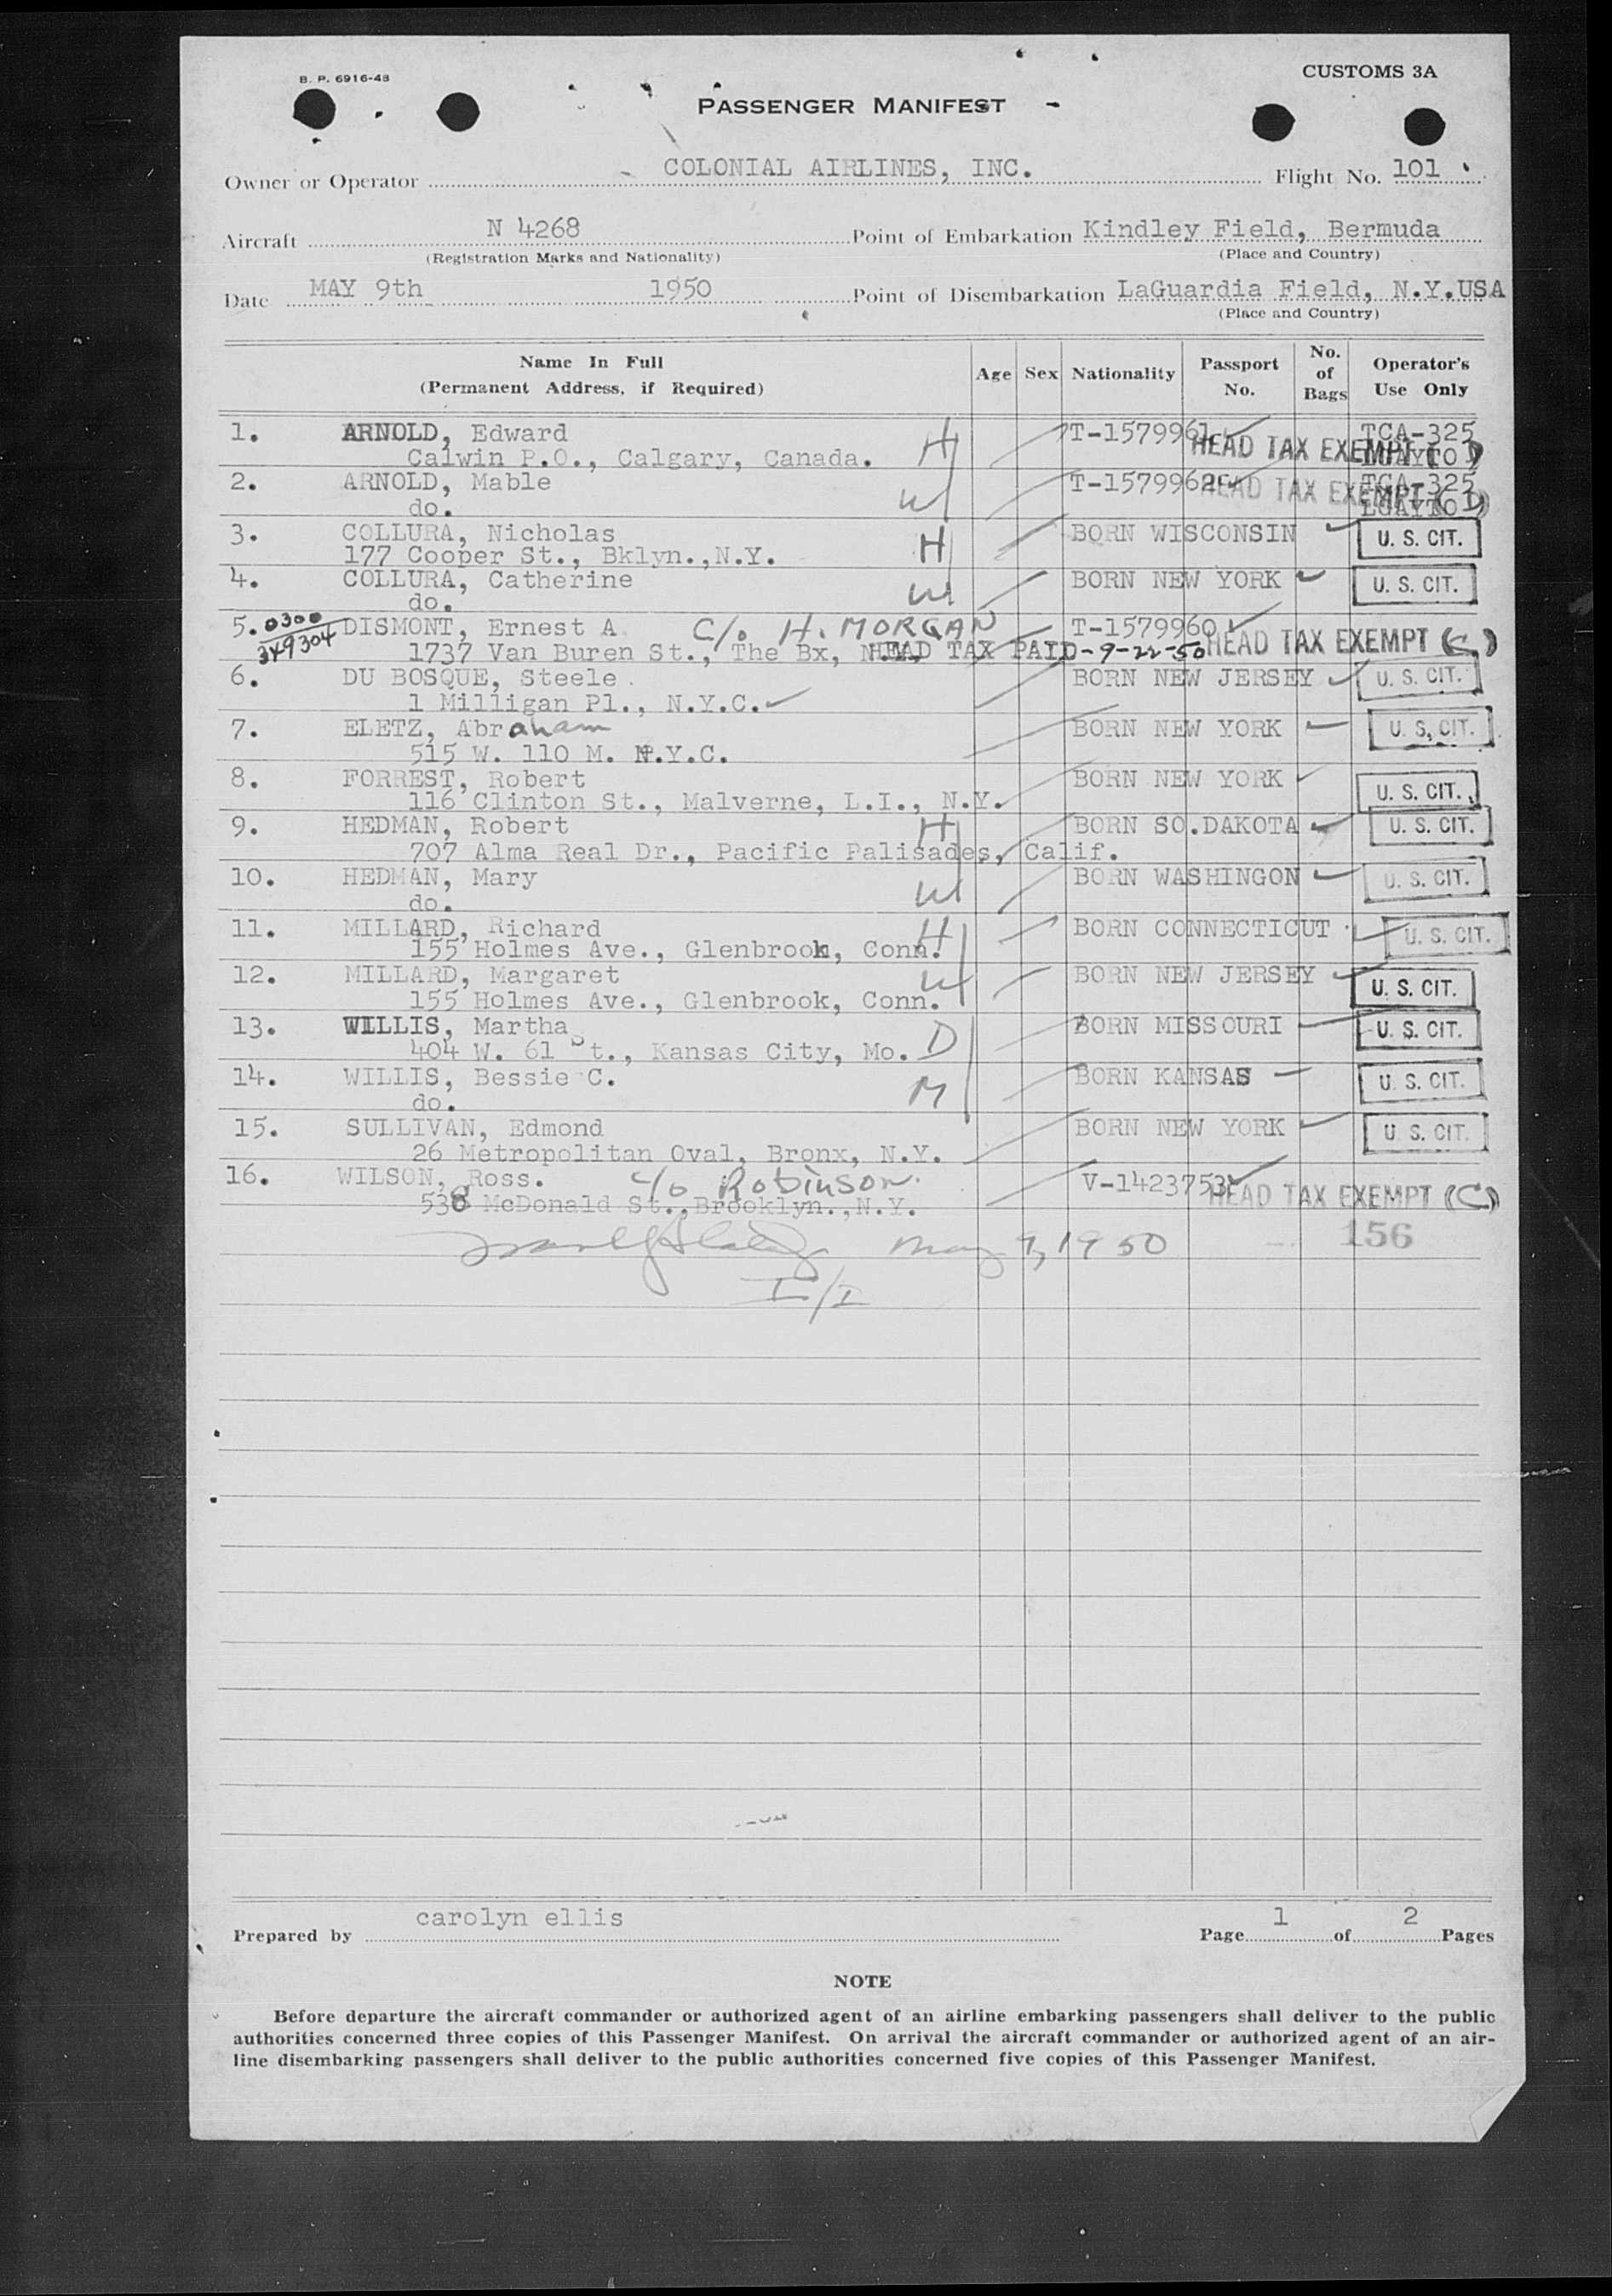 B. P. 6916-48
CUSTOMS 3A
PASSENGER MANIFEST
Owner or Operator COLONIAL AIRLINES, INC. Flight No. 101
Aircraft N 4268 Point of Embarkation Kindley Field, Bermuda
(Registration Marks and Nationality) (Place and Country)
Date MAY 9th 1950 Point of Disembarkation LaGuardia Field, N.Y.USA
(Place and Country)
Name In Full (Permanent Address, if Required) Age Sex Nationality Passport No. No. of Bags Operator's Use Only
1. ARNOLD, Edward H T-1579961 TCA-325
Calwin P.O., Calgary, Canada. HEAD TAX EXEMPT ( D
2. ARNOLD, Mable W T-1579962 TCA-325
do. HEAD TAX EXEMPT ( D)
3. COLLURA, Nicholas H BORN WISCONSIN U. S. CIT.
177 Cooper St., Bklyn.,N.Y.
4. COLLURA, Catherine W BORN NEW YORK U. S. CIT.
do.
5. 0300 DISMONT, Ernest A C/o H. MORGAN T-1579960
349304 1737 Van Buren St., The Bx, HEAD TAX PAID-9-22-50 HEAD TAX EXEMPT (C)
6. DU BOSQUE, Steele BORN NEW JERSEY U. S. CIT.
1 Milligan Pl., N.Y.C.
7. ELETZ, Abraham BORN NEW YORK U. S. CIT.
515 W. 110 M. N.Y.C.
8. FORREST, Robert BORN NEW YORK U. S. CIT.
116 Clinton St., Malverne, L.I., N.Y.
9. HEDMAN, Robert H BORN SO.DAKOTA U. S. CIT.
707 Alma Real Dr., Pacific Palisades, Calif.
10. HEDMAN, Mary W BORN WASHINGON U. S. CIT.
do.
11. MILLARD, Richard H BORN CONNECTICUT U. S. CIT.
155 Holmes Ave., Glenbrook, Conn.
12. MILLARD, Margaret W BORN NEW JERSEY U. S. CIT.
155 Holmes Ave., Glenbrook, Conn.
13. WILLIS, Martha BORN MISSOURI U. S. CIT.
404 W. 61 St., Kansas City, Mo. D
14. WILLIS, Bessie C. M BORN KANSAS U. S. CIT.
do.
15. SULLIVAN, Edmond BORN NEW YORK U. S. CIT.
26 Metropolitan Oval, Bronx, N.Y.
16. WILSON, Ross. c/o Robinson. V-1423753
538 McDonald St.,Brooklyn.,N.Y. HEAD TAX EXEMPT (C)
May 9, 1950 156
I/I
Prepared by carolyn ellis Page 1 of 2 Pages
NOTE
Before departure the aircraft commander or authorized agent of an airline embarking passengers shall deliver to the public
authorities concerned three copies of this Passenger Manifest. On arrival the aircraft commander or authorized agent of an air-
line disembarking passengers shall deliver to the public authorities concerned five copies of this Passenger Manifest.